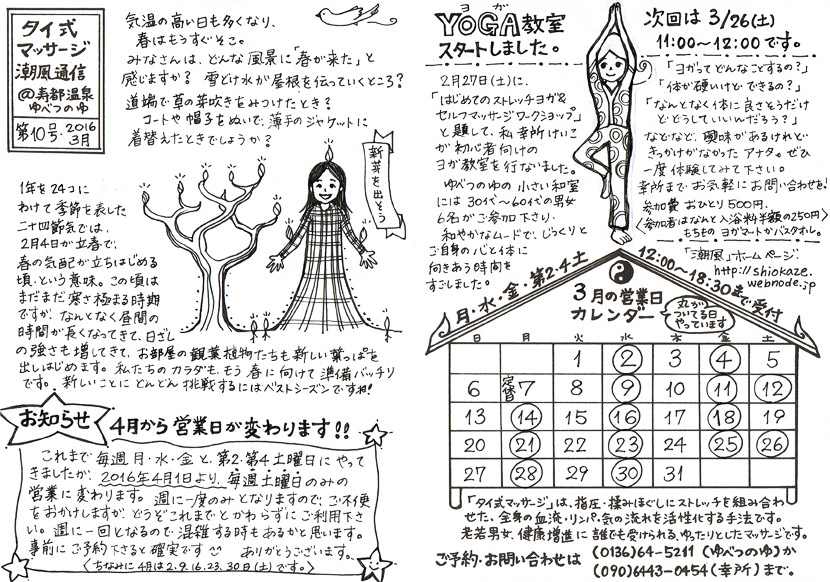 タイ式
マッサージ
潮風通信
@寿都温泉
ゆべつのゆ
第10号 2016
3月
気温の高い日も多くなり、
春はもうすぐそこ。
みなさんは、どんな風景に「春が来た」と
感じますか? 雪どけ水が屋根を伝っていくところ?
道端で草の芽吹きをみつけたとき?
コートや帽子をぬいで、薄手のジャケットに
着替えたときでしょうか?
新芽を出そう
1年を24コに
わけて季節を表した
二十四節気では、
2月4日が立春で、
春の気配が立ちはじめる
頃、という意味。この頃は
まだまだ寒さ極まる時期
ですが、なんとなく昼間の
時間が長くなってきて、日ざし
の強さも増してきて、お部屋の観葉植物たちも新しい葉っぱを
出しはじめます。私たちのカラダも、もう春に向けて準備バッチリ
です。新しいことにどんどん挑戦するにはベストシーズンですね!
お知らせ
4月から営業日が変わります!!
これまで毎週月・水・金と、第2・第4土曜日にやって
きましたが、2016年4月1日より、毎週土曜日のみの
営業に変わります。週に一度のみとなりますので、ご不便
をおかけしますが、どうぞこれまでとかわらずにご利用下さ
い。週に一回となるので、混雑する時もあるかと思います。
事前にご予約下さると確実です ありがとうございます。
〈ちなみに4月は2.9.16.23.30日(土)です。〉
ヨガ
YOGA教室
スタートしました。
次回は 3/26(土)
11:00〜12:00です。
2月27日(土)に、
「はじめてのストレッチヨガ&
セルフマッサージワークショップ」
と題して、私幸所けいこ
が初心者向けの
ヨガ教室を行ないました。
ゆべつのゆの小さい和室
には30代〜60代の男女
6名がご参加下さり、
和やかなムードで、じっくりと
ご自身の心と体に
向きあう時間を
すごしました。
「ヨガってどんなことするの?」
「体が硬いけどできるの?」
「なんとなく体に良さそうだけ
どどうしていいんだろう?」
などなど、興味があるけれど
きっかけがなかったアナタ。ぜひ
一度体験してみて下さい。
幸所までお気軽にお問い合わせを!
参加費 おひとり500円。
〈参加者はなんと入浴料半額の250円〉
もちもの ヨガマットかバスタオル。
「潮風」ホームページ
http://shiokaze.
webnode.jp
月・水・金・第2・4土
12:00〜18:30まで受付
3月の営業日
カレンダー
丸が
ついてる日
やっています
日 月 火 水 木 金 土
1 2 3 4 5
6 定休日 7 8 9 10 11 12
13 14 15 16 17 18 19
20 21 22 23 24 25 26
27 28 29 30 31
「タイ式マッサージ」は、指圧・揉みほぐしにストレッチを組み合わ
せた、全身の血流・リンパ・気の流れを活性化する手法です。
老若男女、健康増進に誰でも受けられる、ゆったりとしたマッサージです。
ご予約・お問い合わせは (0136)64-5211 (ゆべつのゆ)か
(090)6443-0454(幸所)まで。